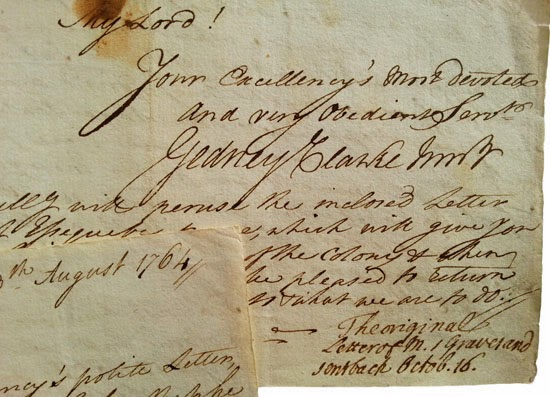 My Lord!
Your Excellency's most devoted
and very Obedient Servt
Gedney Clarke Junr
will peruse the inclosed Letter
Essequebo, which will give you
of the Colony & then
be pleased to return
what we are to do.
th August 1764
The original
Letter of M. s'Gravesand
sent back Octob. 16.
ncy's polite Letter,